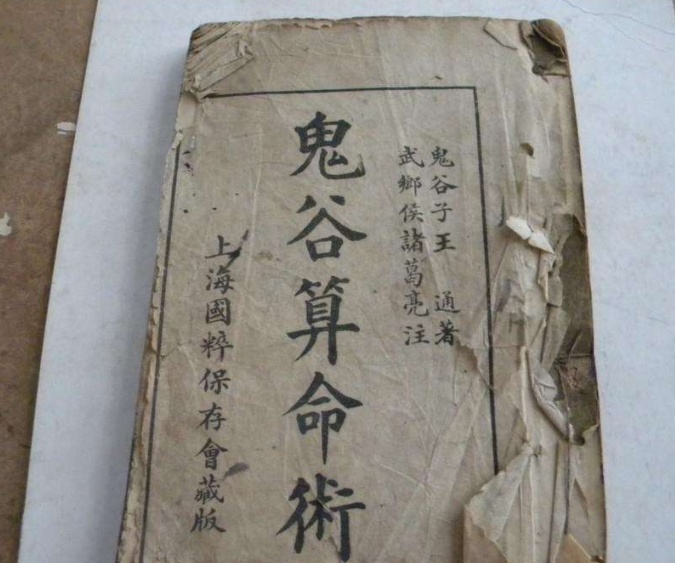 鬼谷子王 通著
武鄉侯諸葛亮注
鬼谷算命術
上海國粹保存會藏版